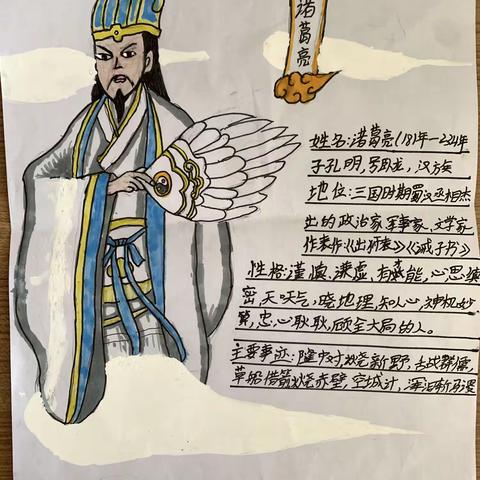 诸葛亮
姓名:诸葛亮(181年—234年
字孔明,号卧龙,汉族
地位:三国时期蜀汉丞相杰
出的政治家军事家、文学家
作著作:《出师表》《诫子书》
性格:谨慎、谦虚、有才能,心思缜
密,天天气,晓地理,知人心,神机妙
算,忠心耿耿,顾全大局的人。
主要事迹:隆中对火烧新野,舌战群儒,
草船借箭火烧赤壁,空城计,挥泪斩马谡